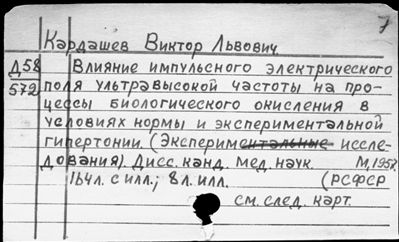 7
Кардашев Виктор Львович.
Д58 Влияние импульсного электрического
572 поля ультравысокой частоты на про-
цессы биологического окисления в
условиях нормы и экспериментальной
гипертонии. (Экспериментальные иссле-
дования). Дисс. канд. мед. наук. М, 1957.
164л. с илл.; 8л. илл. (РСФСР
см. след. карт.